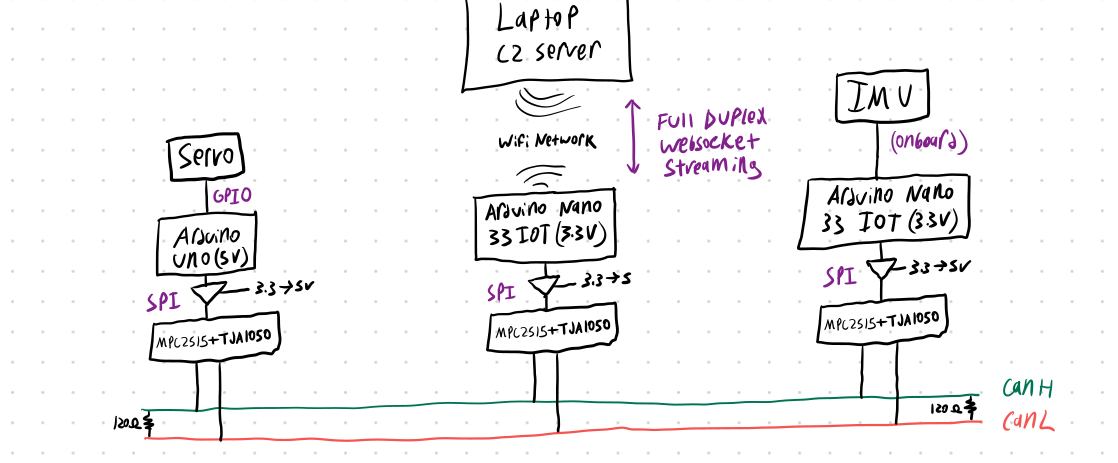 Laptop
C2 server
WiFi Network
Full Duplex
Websocket
Streaming
IMU
(onboard)
Servo
GPIO
Arduino
UNO (5V)
SPI
3.3→5V
MPC2515+TJA1050
Arduino Nano
33 IOT (3.3V)
SPI
3.3→5
MPC2515+TJA1050
Arduino Nano
33 IOT (3.3V)
SPI
3.3→5V
MPC2515+TJA1050
120Ω
120Ω
CanH
CanL